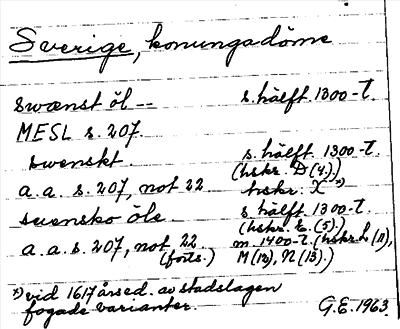 Sverige, konungadöme
swænst öl -- s. hälft. 1300-t.
MESL s. 207.
swenskt. s. hälft. 1300-t.
(hskr. D (4).)
a.a. s. 207, not 22 hskr. X *)
suensko öle. s. hälft. 1300-t.
(hskr. E. (5).)
a.a. s. 207, not. 22 m. 1400-t. (hskr. L (11),
(forts.) M (12), N (13).)
*) vid 1617 årsed. av stadslagen
fogade varianter. G.E. 1963.